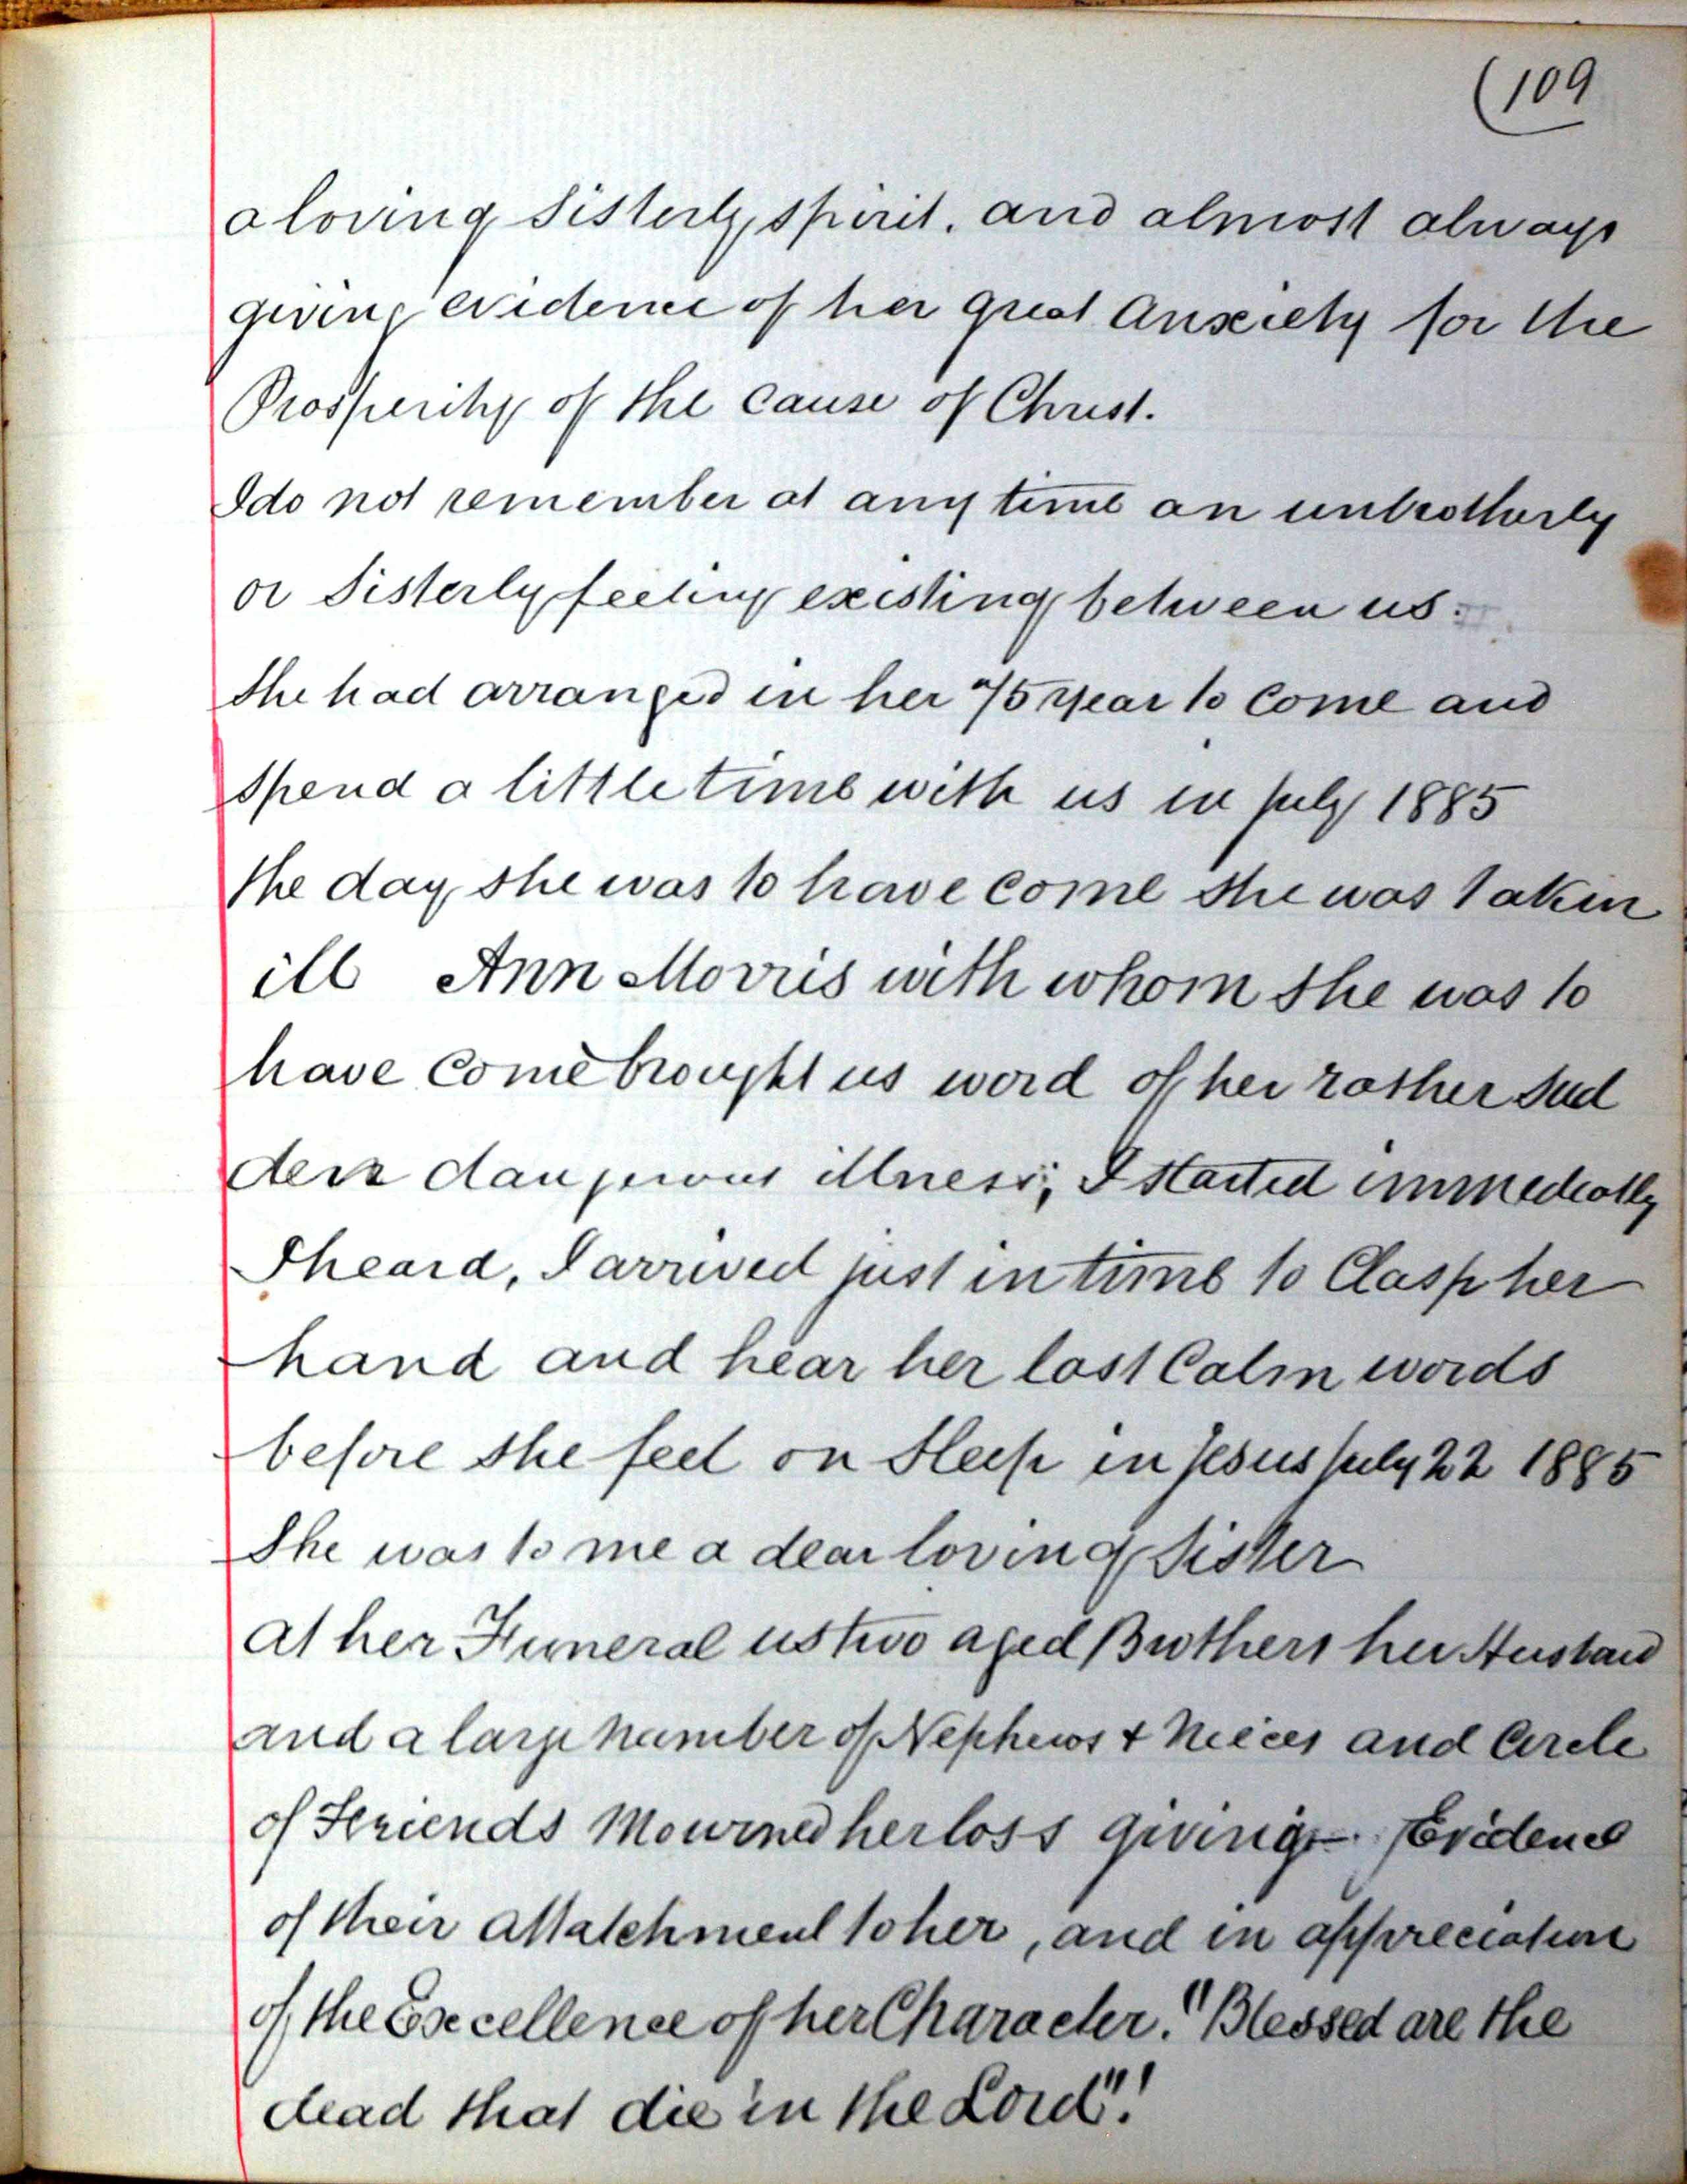 (109
a loving Sisterly spirit, and almost always
giving evidence of her great Anxiety for the
Prosperity of the cause of Christ.
I do not remember at any time an unbrotherly
or Sisterly feeling existing between us.
She had arranged in her 75 year to Come and
spend a little time with us in july 1885
the day she was to have come she was taken
ill Ann Morris with whom she was to
have come brought us word of her rather sud
den dangerous illness; I started immediatly
I heard, I arrived just in time to Clasp her
hand and hear her last Calm words
before she feel on Sleep in Jesus july 22 1885
She was to me a dear loving Sister
at her Funeral us two aged Brothers her Husband
and a large number of Nephews + Neices and Circle
of Friends Mourned her loss giving Evidence
of their Attatchment to her, and in appreciation
of the Excellence of her Character. "Blessed are the
dead that die in the Lord"!